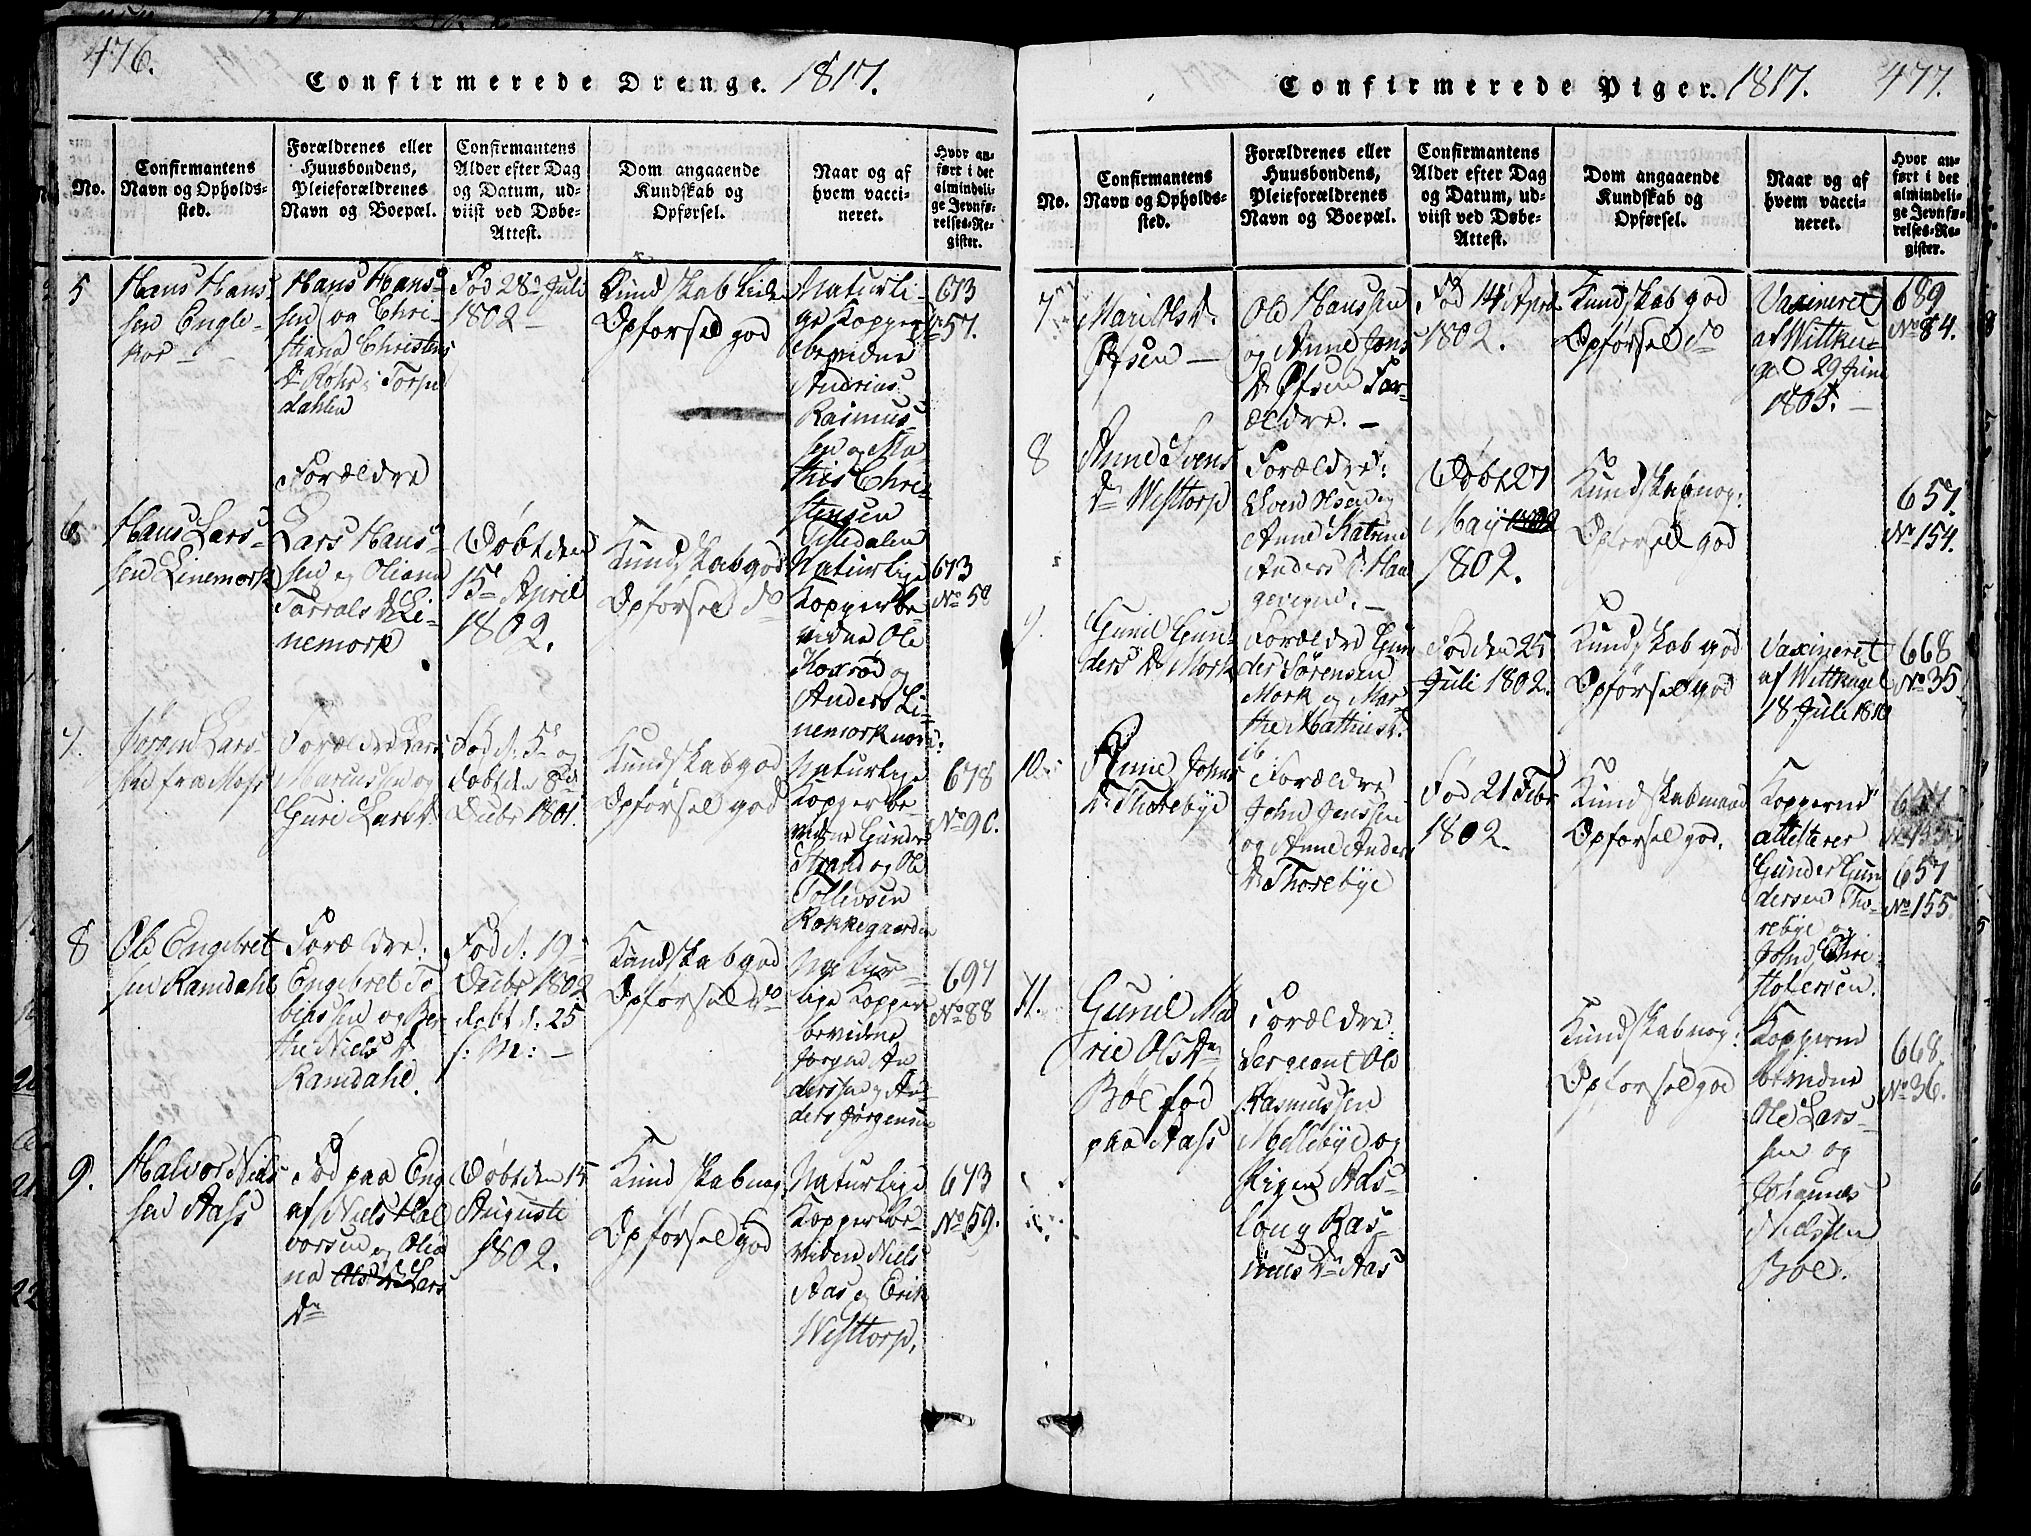 476.
Confirmerede Drenge. 1817.
No.
Confirmantens
Navn og Opholds-
sted.
Forældrenes eller
Huusbondens,
Pleieforældrenes
Navn og Boepæl.
Confirmantens
Alder efter Dag
og Datum, ud-
viist ved Døbe-
Attest.
Dom angaaende
Kundskab og
Opførsel.
Naar og af
hvem vacci-
neret.
Hvor an-
ført i det
almindeli-
ge Jevnfø-
relses-Re-
gister.
5
Hans Hans-
sen Engle-
kor
Hans Hans-
sen og Chri-
stiana Christens
Dr Rohr i Torpe
dahlen
Forældre
Fød 28de Juli
1802
Kundskab
Opførsel god
Naturli-
ge Kopper
bevidne
Andrias
Rasmus-
sen og Ma
this Chri-
stensen
673
57.
6
Hans Lars-
sen Linemork
Lars Hans-
sen og Oliana
Tarrals Dr Li-
nemork
Døbt den
15de April
1802.
Kundskab god
Opførsel do
Naturlige
Kopper be
vidne Ole
og
Anders Li-
nemork
673
No 58
7.
Jørgen Lars-
sen fra Moss
Forældre Lars
Marcussen og
Guri Larsdr.
Fød d. 5te og
døbt den 8de
Decbr 1801.
Kundskab god
Opførsel god
Naturlige
Kopper be
vidne Gunder
Strand og Ole
Tollevsen
Rokkegaarden
678
No 90.
8
Ole Engebret
sen Ramdahl
Forældre:
Engebret To
biassen og Ber-
the Niels Dr
Ramdahl.
Fød d. 19
Decbr 1802
døbt d. 25
s: M:
Kundskab god
Opførsel do
Natur-
lige Kopper
bevidne
Jørgen An
derssen og An
ders Jørgensen
697
No 88
9.
Halvor Niels
sen Aass
Fød paa Eng
af Niels Hal
vorsen og Olia
na Lars
Dr
Døbt den 15
Auguste
1802.
Kundskab nog.
Opførsel god
Naturlige
Kopper be-
viden Niels
Aas og Erik
Westtorp.
673
No 59.
Confirmerede Piger. 1817. 477.
No.
Confirmantens
Navn og Opholds-
sted.
Forældrenes eller
Huusbondens,
Pleieforældrenes
Navn og Boepæl.
Confirmantens
Alder efter Dag
og Datum, ud-
viist ved Døbe-
Attest.
Dom angaaende
Kundskab og
Opførsel.
Naar og af
hvem vacci-
neret.
Hvor an-
ført i det
almindeli-
ge Jevnfø-
relses-Re-
gister.
7
Mari Ols Dr.
Øfsen
Ole Hanssen
og Anne Jons
Dr Øfsen For-
ældre.
Fød 14 April
1802.
Kundskab god
Opførsel do
Vaxineret
af Wittku-
gel 29 Juni
1805.
689
No 84.
8
Anne Svens
Dr Westtorp
Forældre:
Sven Olsen og
Anne Katrine
Anders Dr Hau
gevejen.
Døbt 27
May
1802.
Kundskab nog:
Opførsel god
657.
No 154.
9.
Gunil Gun-
ders Dr Mork
Forældre Gun
der Sørensen
Mork og Mar-
the Mathiesdr.
ib
Fød den 25
Juli 1802.
Kundskab god
Opførsel god
Vaxineret
af Wittkugel
18 Juli 1810
668
No 35
10.
Anne Johns
Dr Thorebye
Forældre
John Jenssen
og Anne Anders
Dr Thorebye
Fød 21 Febr
1802.
Kundskab maad
Opførsel god.
Kopperne
attesterer
Gunder Gun
dersen Tho-
rebye og
John Chri-
stofersen.
657
No 155.
11.
Gunil Ma
rie Ols Dr
Böe fød
paa Aass
Forældre:
Sergeant Ole
Rasmussen
Mellebye og
Pigen Aas-
loug Ras-
mus Dr Aas
Kundskab nog:
Opførsel god
Kopperne
bevidne
Ole Lars-
sen og
Johannes
Nielssen
Böe.
668.
No 36.